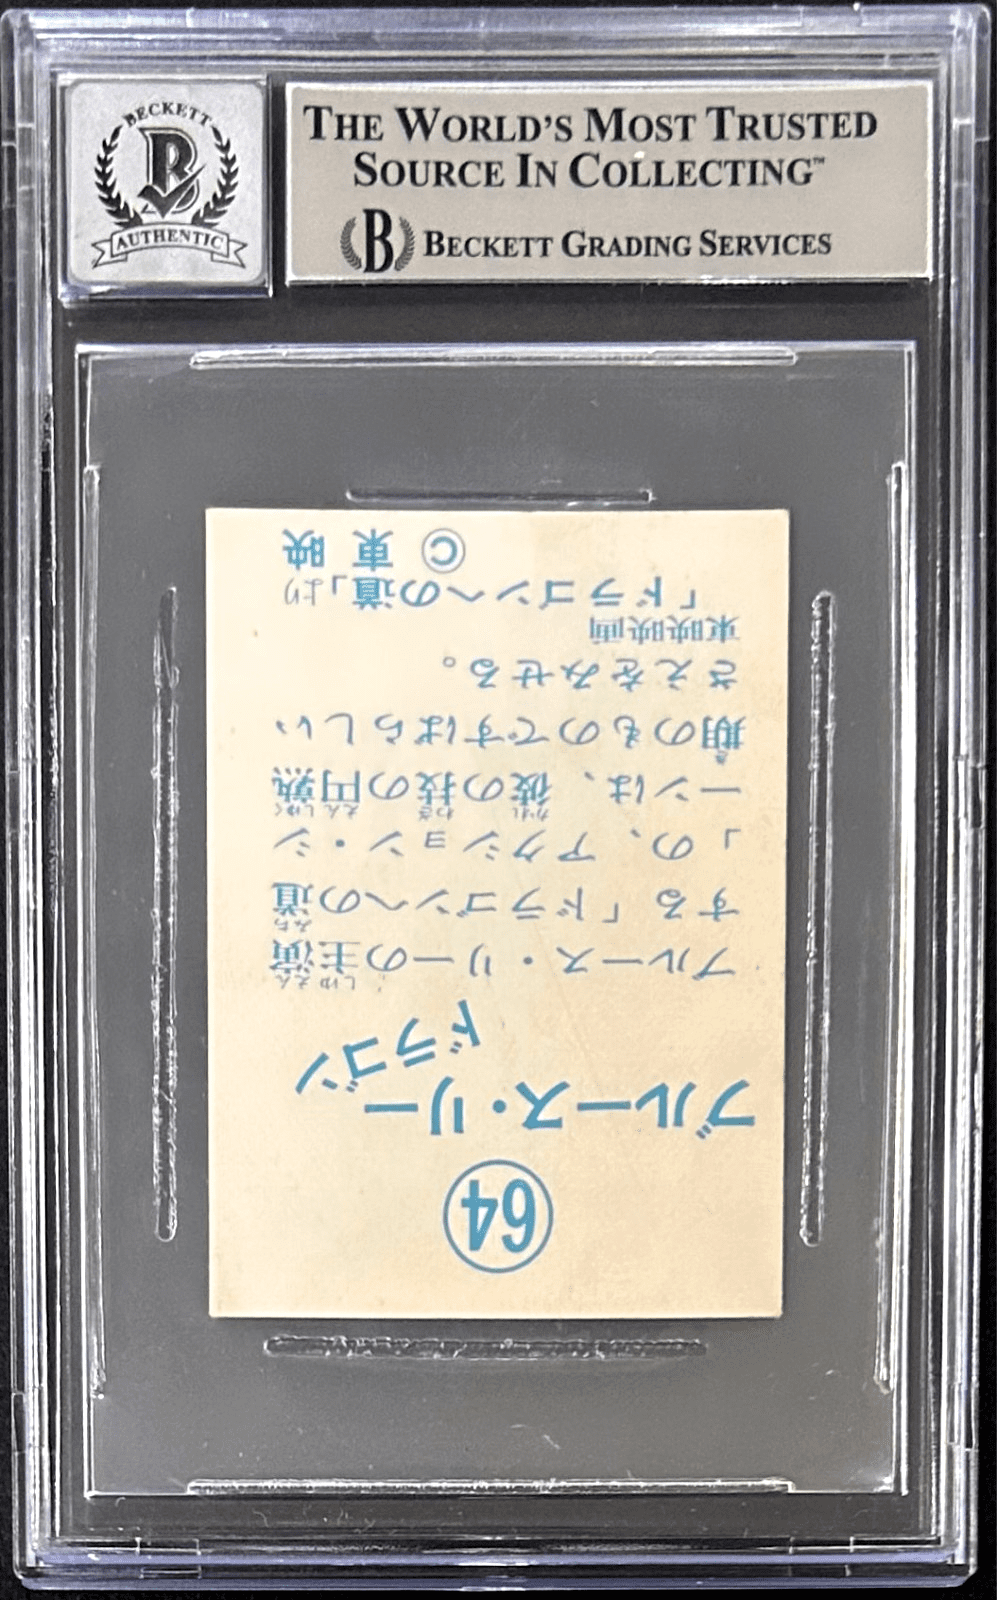 BECKETT
B
AUTHENTIC
THE WORLD'S MOST TRUSTED
SOURCE IN COLLECTING™
B BECKETT GRADING SERVICES
64
ブルース・リー
ドラゴン
しゅえん
ブルース・リーの主演
みち
する「ドラゴンへの道
」の、アクション・シ
かれ わざ えんじゅく
ーンは、彼の技の円熟
き
期のものですばらしい
さえをみせる。
東映映画
「ドラゴンへの道」より
© 東映